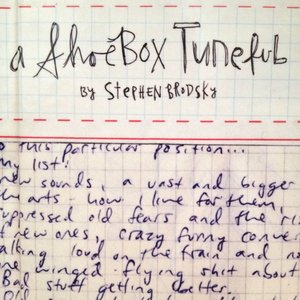 a ShoeBox Tuneful
by Stephen Brodsky
o this particular position...
my list!
new sounds, a vast and bigger
hearts - how I live for them,
uppressed old fears and the ri
f new ones, crazy funny conve
alking loud on the train and no
one winged flying shit about
Bad stuff getting better.
Old